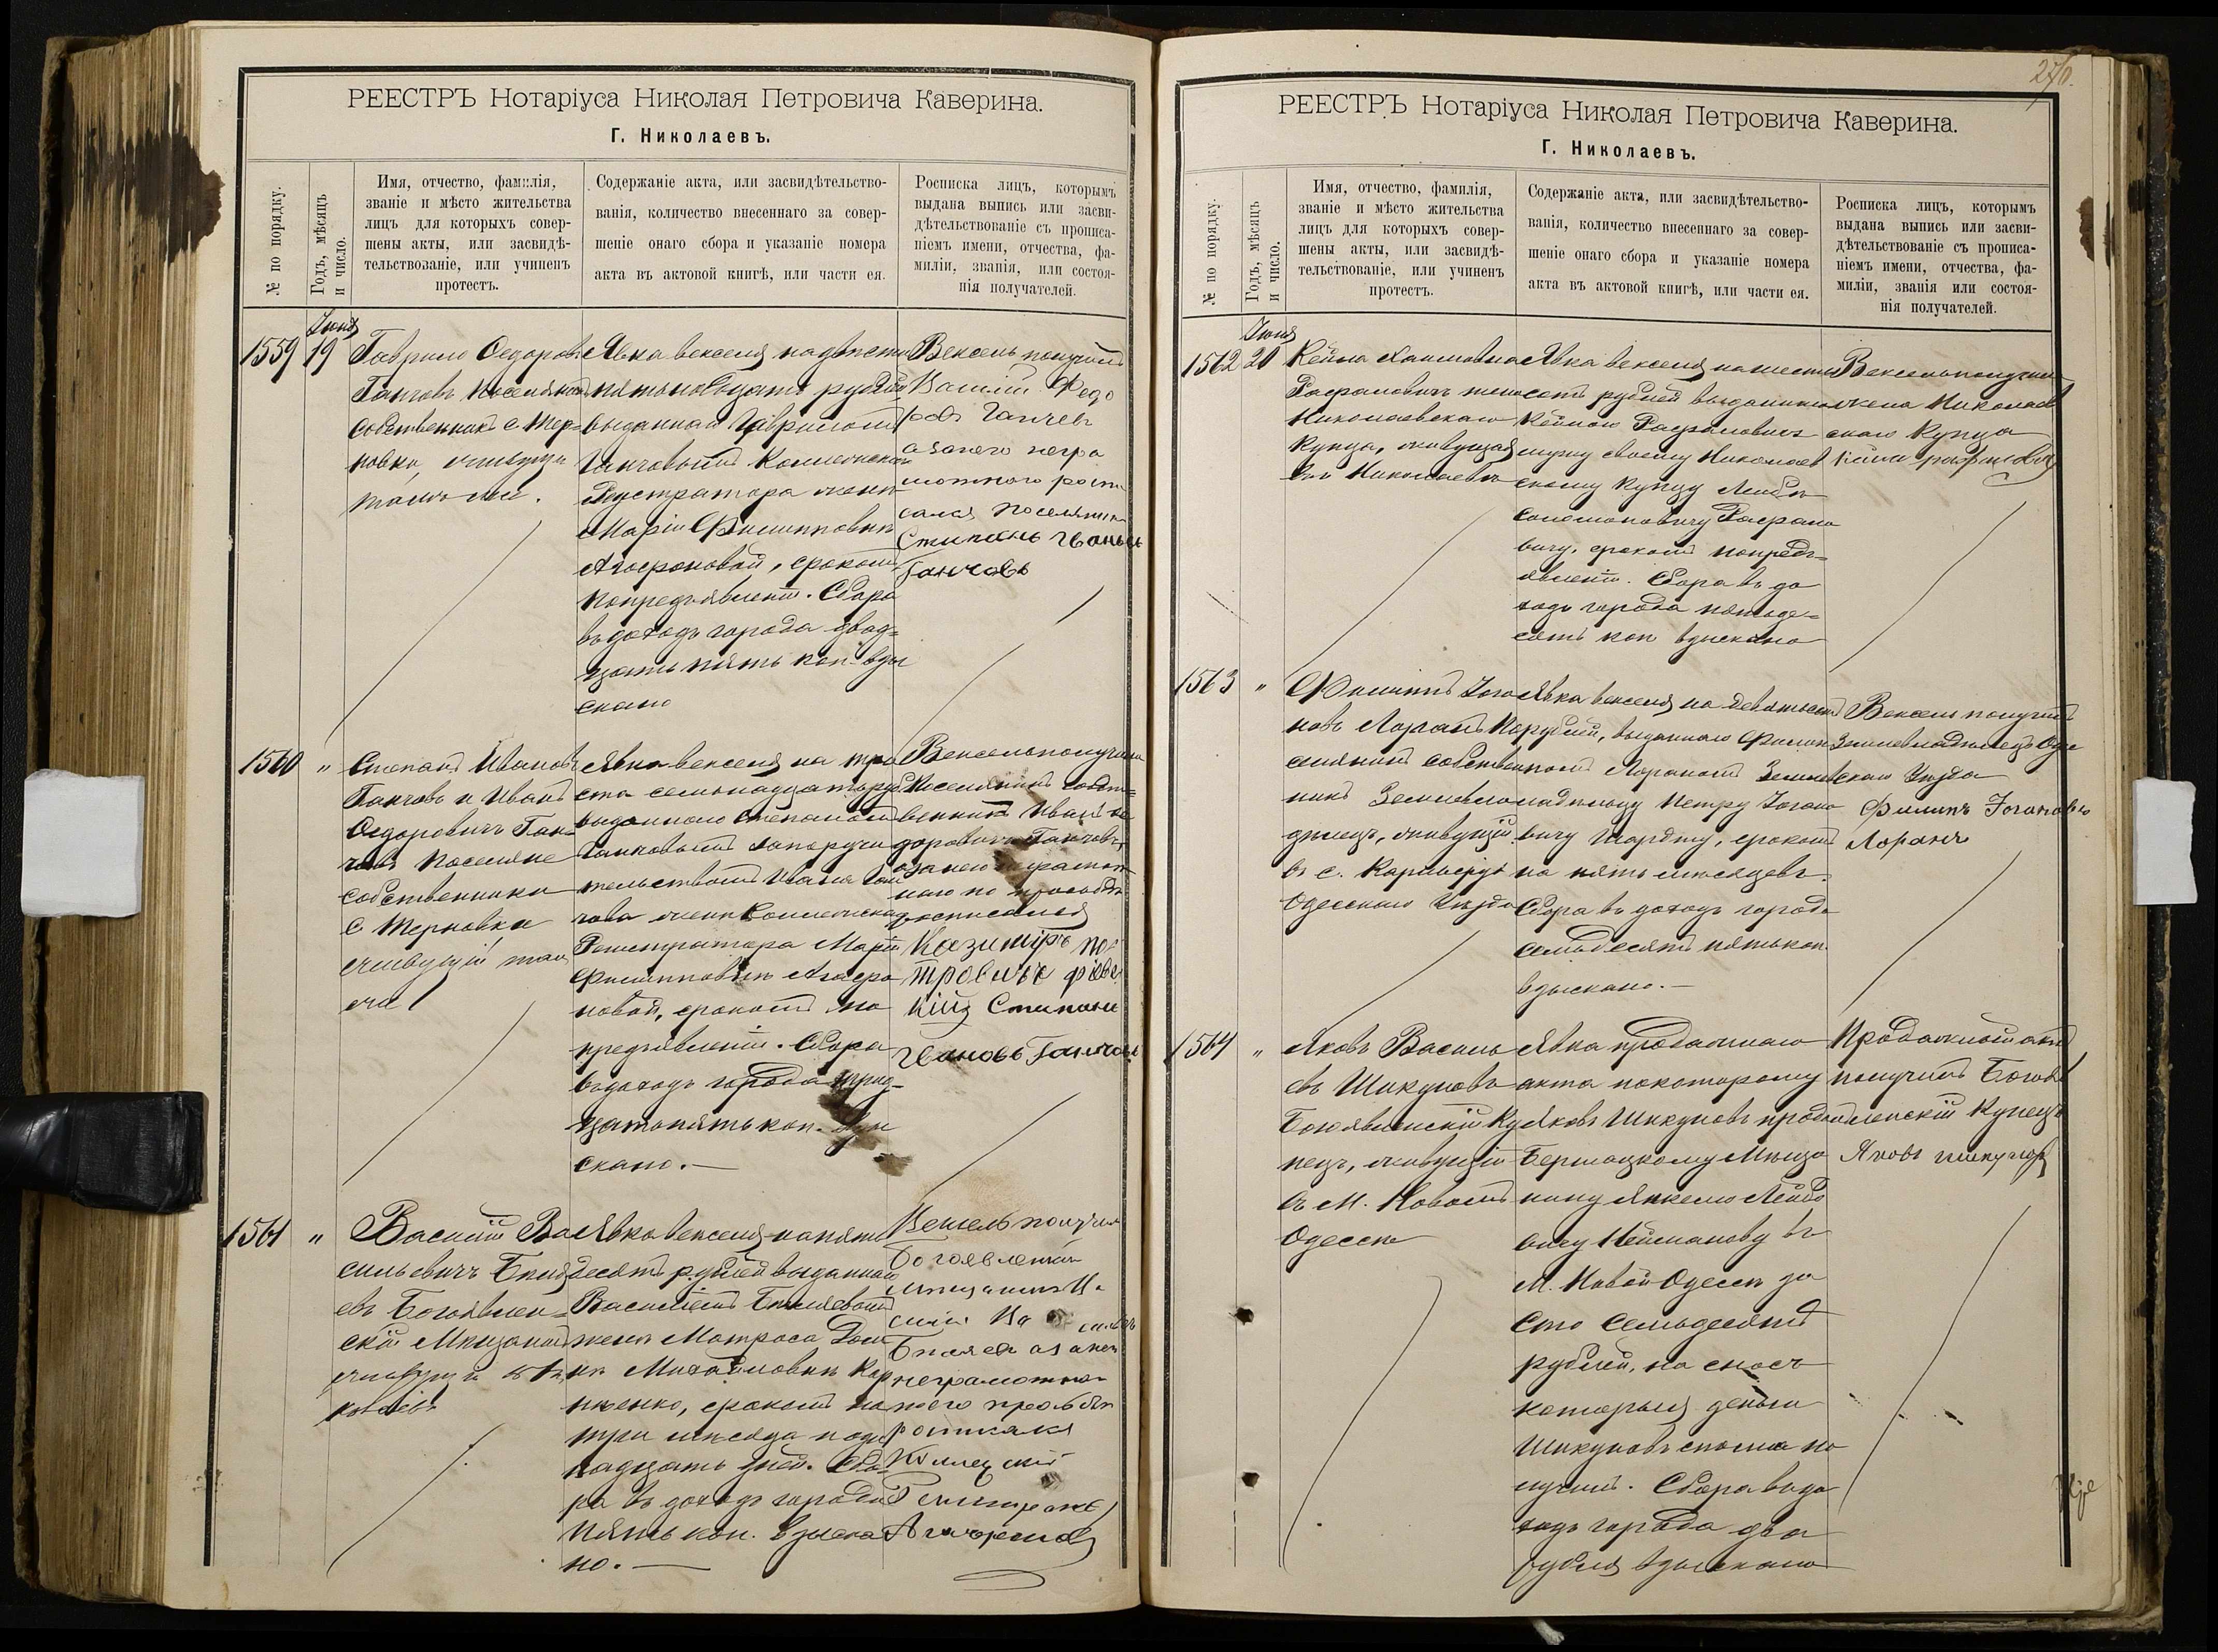 РЕЕСТРЪ Нотаріуса Николая Петровича Каверина.
Г. Николаевъ.
№ по порядку.
Годъ, мѣсяцъ
и число.
Имя, отчество, фамилія,
званіе и мѣсто жительства
лицъ для которыхъ совер-
шены акты, или засвидѣ-
тельствованіе, или учиненъ
протестъ.
Содержаніе акта, или засвидѣтельство-
ванія, количество внесеннаго за совер-
шеніе онаго сбора и указаніе номера
акта въ актовой книгѣ, или части ея.
Росписка лицъ, которымъ
выдана выпись или засви-
дѣтельствованіе съ прописа-
ніемъ имени, отчества, фа-
миліи, званія, или состоя-
нія получателей.
Іюня
1559
19
Гаврило Ѳедоровъ
Ганчовъ поселянинъ
собственникъ с. Тер-
новки,
тамъ же.
Явка векселя на двѣсти
пятьдесятъ рублей
выданнаго Гавриломъ
Ганчовымъ Коллежскаго
Регистратора женѣ
Маріи Филипповнѣ
Агафоновой, срокомъ
по предъявленіи. Сбора
въ доходъ города двад-
цать пять коп. взы
скано
Вексель получилъ
Ганчевъ
а за него негра
мотнаго роспи
сался поселянинъ
Степанъ Ивановъ
Ганчовъ
1560
"
Степанъ Ивановъ
Ганчовъ и Иванъ
Ѳедоровичъ Ган-
човъ поселяне
собственники
с. Терновки
живущіе там
же
Явка векселя на три
ста семьнадцать руб
выданнаго Степаномъ
Ганчовымъ за поручи
тельствомъ Ивана Ган
чова женѣ Коллежскаго
Регистратора Маріи
Филипповнѣ Агафо
новой, срокомъ по
предъявленіи. Сбора
въ доходъ города трид-
цать пять коп. взы
скано.—
Вексель получилъ
Поселянинъ собст-
венникъ Иванъ Ѳе
доровичъ Ганчовъ
а за него неграмот
наго по просьбѣ
росписался
Казиміръ Пе
тровичъ
Степанъ
Ивановъ Ганчовъ
1561
"
Василій Ва
сильевичъ Бѣля
евъ Богоявлен-
скій Мѣщанинъ
живущій въ Ни
колаевѣ
Явка векселя на пять
десятъ рублей выданнаго
Василіемъ Бѣляевымъ
женѣ Матроса
Михайловнѣ Кар
пѣенко, срокомъ на
три мѣсяца и один
надцать дней. Сбо
ра въ доходъ города
пять коп. взыска
но.—
Вексель получилъ
Богоявленскій
мѣщанинъ Ва
силій Васильевъ
Бѣляевъ а за него
неграмотна
го по его просьбѣ
росписался
Коллежскій
Регистраторъ
РЕЕСТРЪ Нотаріуса Николая Петровича Каверина.
Г. Николаевъ.
№ по порядку.
Годъ, мѣсяцъ
и число.
Имя, отчество, фамилія,
званіе и мѣсто жительства
лицъ для которыхъ совер-
шены акты, или засвидѣ-
тельствованіе, или учиненъ
протестъ.
Содержаніе акта, или засвидѣтельство-
ванія, количество внесеннаго за совер-
шеніе онаго сбора и указаніе номера
акта въ актовой книгѣ, или части ея.
Росписка лицъ, которымъ
выдана выпись или засви-
дѣтельствованіе съ прописа-
ніемъ имени, отчества, фа-
миліи, званія или состоя-
нія получателей.
Іюня
1562
20
Кейла Хаимовна
Рафаловичъ жена
Николаевскаго
Купца, живущая
въ Николаевѣ
Явка векселя на шесть
сотъ рублей выданнаго
Кейлою Рафаловичъ
мужу своему Николаев
скому Купцу Лейбѣ
Соломоновичу Рафало
вичу, срокомъ по предъ-
явленіи. Сбора въ до
ходъ города пятьде-
сятъ коп взыскано
Вексель получила
жена Николаев
скаго Купца
Кейла Рафаловичъ
1563
"
Филиппъ Іога
новъ Лоранъ По
селянинъ собствен
никъ Землевла
дѣлецъ, живущій
въ с. Карлсруэ
Одесскаго Уѣзда
Явка векселя на девятьсотъ
рублей, выданнаго Филип
помъ Лораномъ Землев
ладѣльцу Петру Іогано
вичу срокомъ
на пять мѣсяцевъ.
Сбора въ доходъ города
семьдесятъ пять коп
взыскано.—
Вексель получилъ
Землевладѣлецъ Одес
скаго Уѣзда
Филипъ Іогановъ
Лоранъ
1564
"
Яковъ Василь
евъ Шикуновъ
Богоявленскій Ку
пецъ, живущій
въ М. Новой
Одессѣ
Явка продажнаго
акта по которому
Яковъ Шикуновъ продалъ
Мѣща
нину Янкелю Лейбо
вичу Нейманову въ
М. Новой Одессѣ за
сто семьдесятъ
рублей, на сносъ
которыя деньги
Шикуновъ сполна по
лучилъ. Сбора въ до
ходъ города два
рубля взыскано
Продажный актъ
получилъ Богояв
ленскій Купецъ
Яковъ Шикуновъ